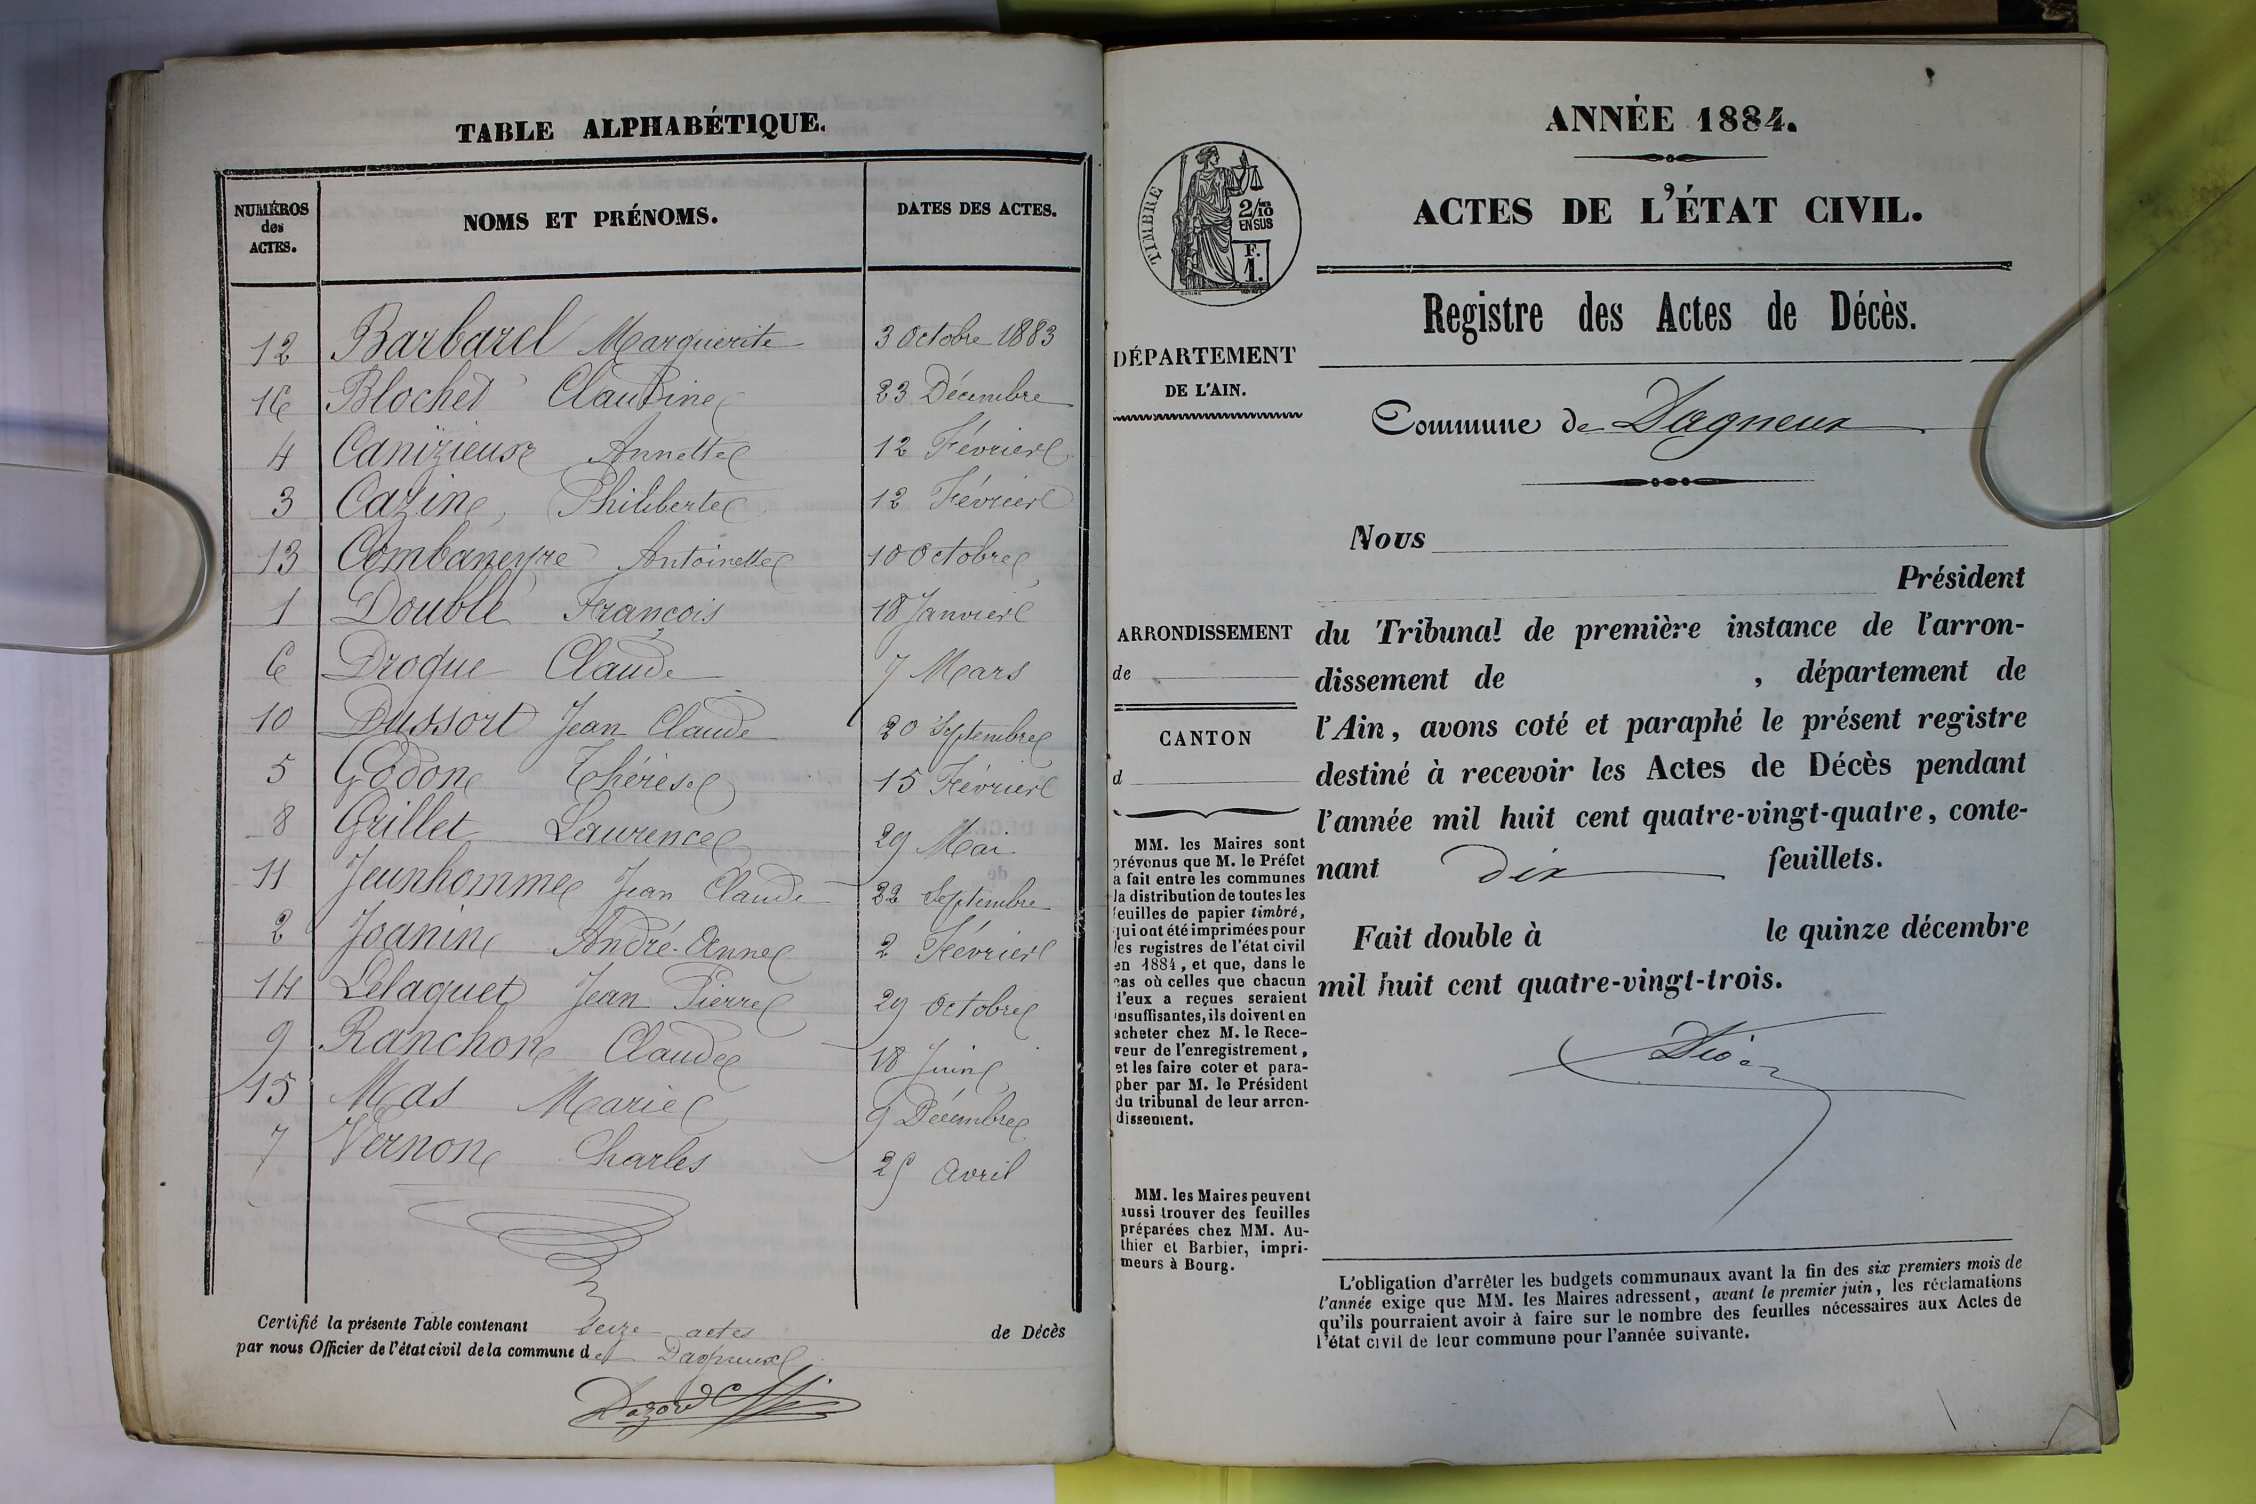 TABLE ALPHABÉTIQUE.
NUMÉROS des ACTES.
NOMS ET PRÉNOMS.
DATES DES ACTES.
12 Barbarel Marguerite 3 Octobre 1883
16 Blochet Claudine 23 Décembre
4 Canizieux Annette 12 Février
3 Cazin Philiberte 12 Février
13 Combaneyre Antoinette 10 Octobre
1 Double François 18 Janvier
6 Drogue Claude 7 Mars
10 Dussort Jean Claude 20 Septembre
5 Godon Thérèse 15 Février
8 Grillet Laurence 29 Mai
11 Jeunhomme Jean Claude 22 Septembre
2 Joanin André-Anne 2 Février
14 Lelaquet Jean Pierre 29 Octobre
9 Ranchon Claude 18 Juin
15 Mas Marie 9 Décembre
7 Vernon Charles 25 Avril
Certifié la présente Table contenant seize actes de Décès
par nous Officier de l'état civil de la commune de Dagneux
ANNÉE 1884.
TIMBRE
2/10
EN SUS
F.
1.
ACTES DE L'ÉTAT CIVIL.
Registre des Actes de Décès.
DÉPARTEMENT
DE L'AIN.
Commune de Dagneux
Nous
Président
ARRONDISSEMENT
de
CANTON
d
du Tribunal de première instance de l'arron-
dissement de , département de
l'Ain, avons coté et paraphé le présent registre
destiné à recevoir les Actes de Décès pendant
l'année mil huit cent quatre-vingt-quatre, conte-
nant dix feuillets.
Fait double à le quinze décembre
mil huit cent quatre-vingt-trois.
MM. les Maires sont
prévenus que M. le Préfet
a fait entre les communes
la distribution de toutes les
feuilles de papier timbré,
qui ont été imprimées pour
les registres de l'état civil
en 1884, et que, dans le
cas où celles que chacun
d'eux a reçues seraient
insuffisantes, ils doivent en
acheter chez M. le Rece-
veur de l'enregistrement,
et les faire coter et para-
pher par M. le Président
du tribunal de leur arron-
dissement.
MM. les Maires peuvent
aussi trouver des feuilles
préparées chez MM. Au-
thier et Barbier, impri-
meurs à Bourg.
L'obligation d'arrêter les budgets communaux avant la fin des six premiers mois de
l'année exige que MM. les Maires adressent, avant le premier juin, les réclamations
qu'ils pourraient avoir à faire sur le nombre des feuilles nécessaires aux Actes de
l'état civil de leur commune pour l'année suivante.